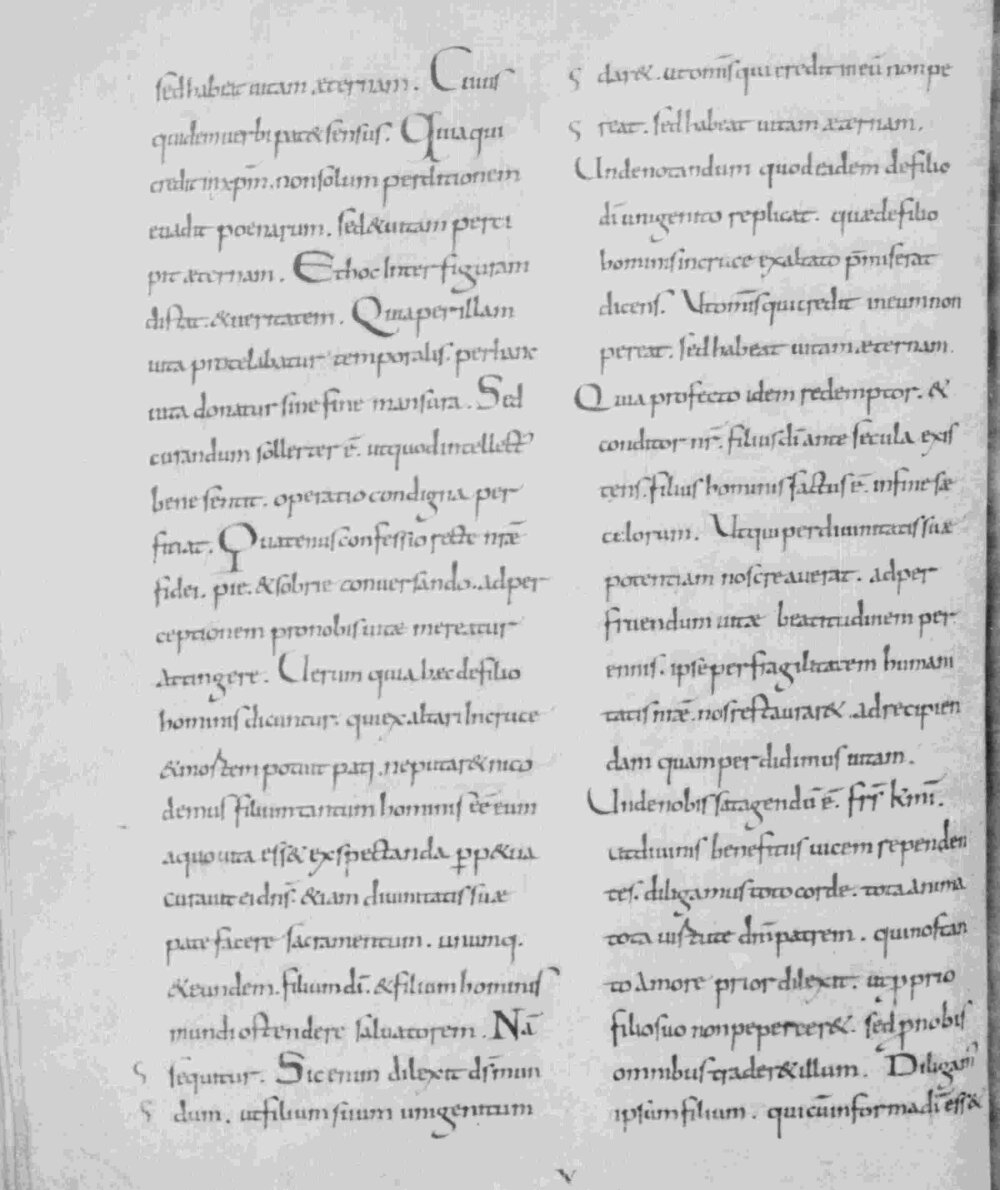 sed habeat uitam æternam. Cuius
quidem uerbi pat& sensus. Quia qui
credit in xp̄m. non solum perditionem
euadit poenarum. sed & uitam perci
pit æternam. Et hoc inter figuram
distat. & ueritatem. Quia per illam
uita protelabatur temporalis. per hanc
uita donatur sine fine mansura. Sed
curandum sollerter ē. ut quod intellectu
bene sentit. operatio condigna per
ficiat. Quatenus confessio recte nr̄æ
fidei. pie. & sobrie conuersando. ad per
ceptionem pro nobis uitæ mereatur
attingere. Uerum quia hæc de filio
hominis dicuntur. qui exaltari in cruce
& mortem potuit pati. ne putar& nico
demus filium tantum hominis ēē eum
a quo uita ess& exspectanda p̱p&ua
curauit ei dn̄s. &iam diuinitatis suæ
patefacere sacramentum. unumq.
& eundem. filium dī. & filium hominis
mundi ostendere saluatorem. Nā
sequitur. Sic enim dilexit ds̄ mun
dum. ut filium suum unigenitum
dar&. ut omīs qui credit in eū non pe
reat. sed habeat uitam æternam.
Unde notandum quod eadem de filio
dī unigenito replicat. quæ de filio
hominis in cruce exaltato p̄miserat
dicens. Ut omīs qui credit in eum non
pereat. sed habeat uitam æternam.
Quia profecto idem redemptor. &
conditor nr̄. filius dī ante secula exis
tens. filius hominis factus ē. in fine sæ
culorum. Ut qui per diuinitatis suæ
potentiam nos creauerat. ad per
fruendum uitæ beatitudinem per
ennis. ipse per fragilitatem humani
tatis nr̄æ. nos restaurar&. ad recipien
dam quam perdidimus uitam.
Unde nobis satagendū ē. frr̄ kmī.
ut diuinis benefitiis uicem rependen
tes. diligamus toto corde. tota anima
tota uirtute dnm̄ patrem. qui nos tan
to amore prior dilexit. ut p̱prio
filio suo non pepercer&. sed p̱ nobis
omnibus trader& illum. Diligam'
ipsum filium. qui cū in forma dī ess&
V